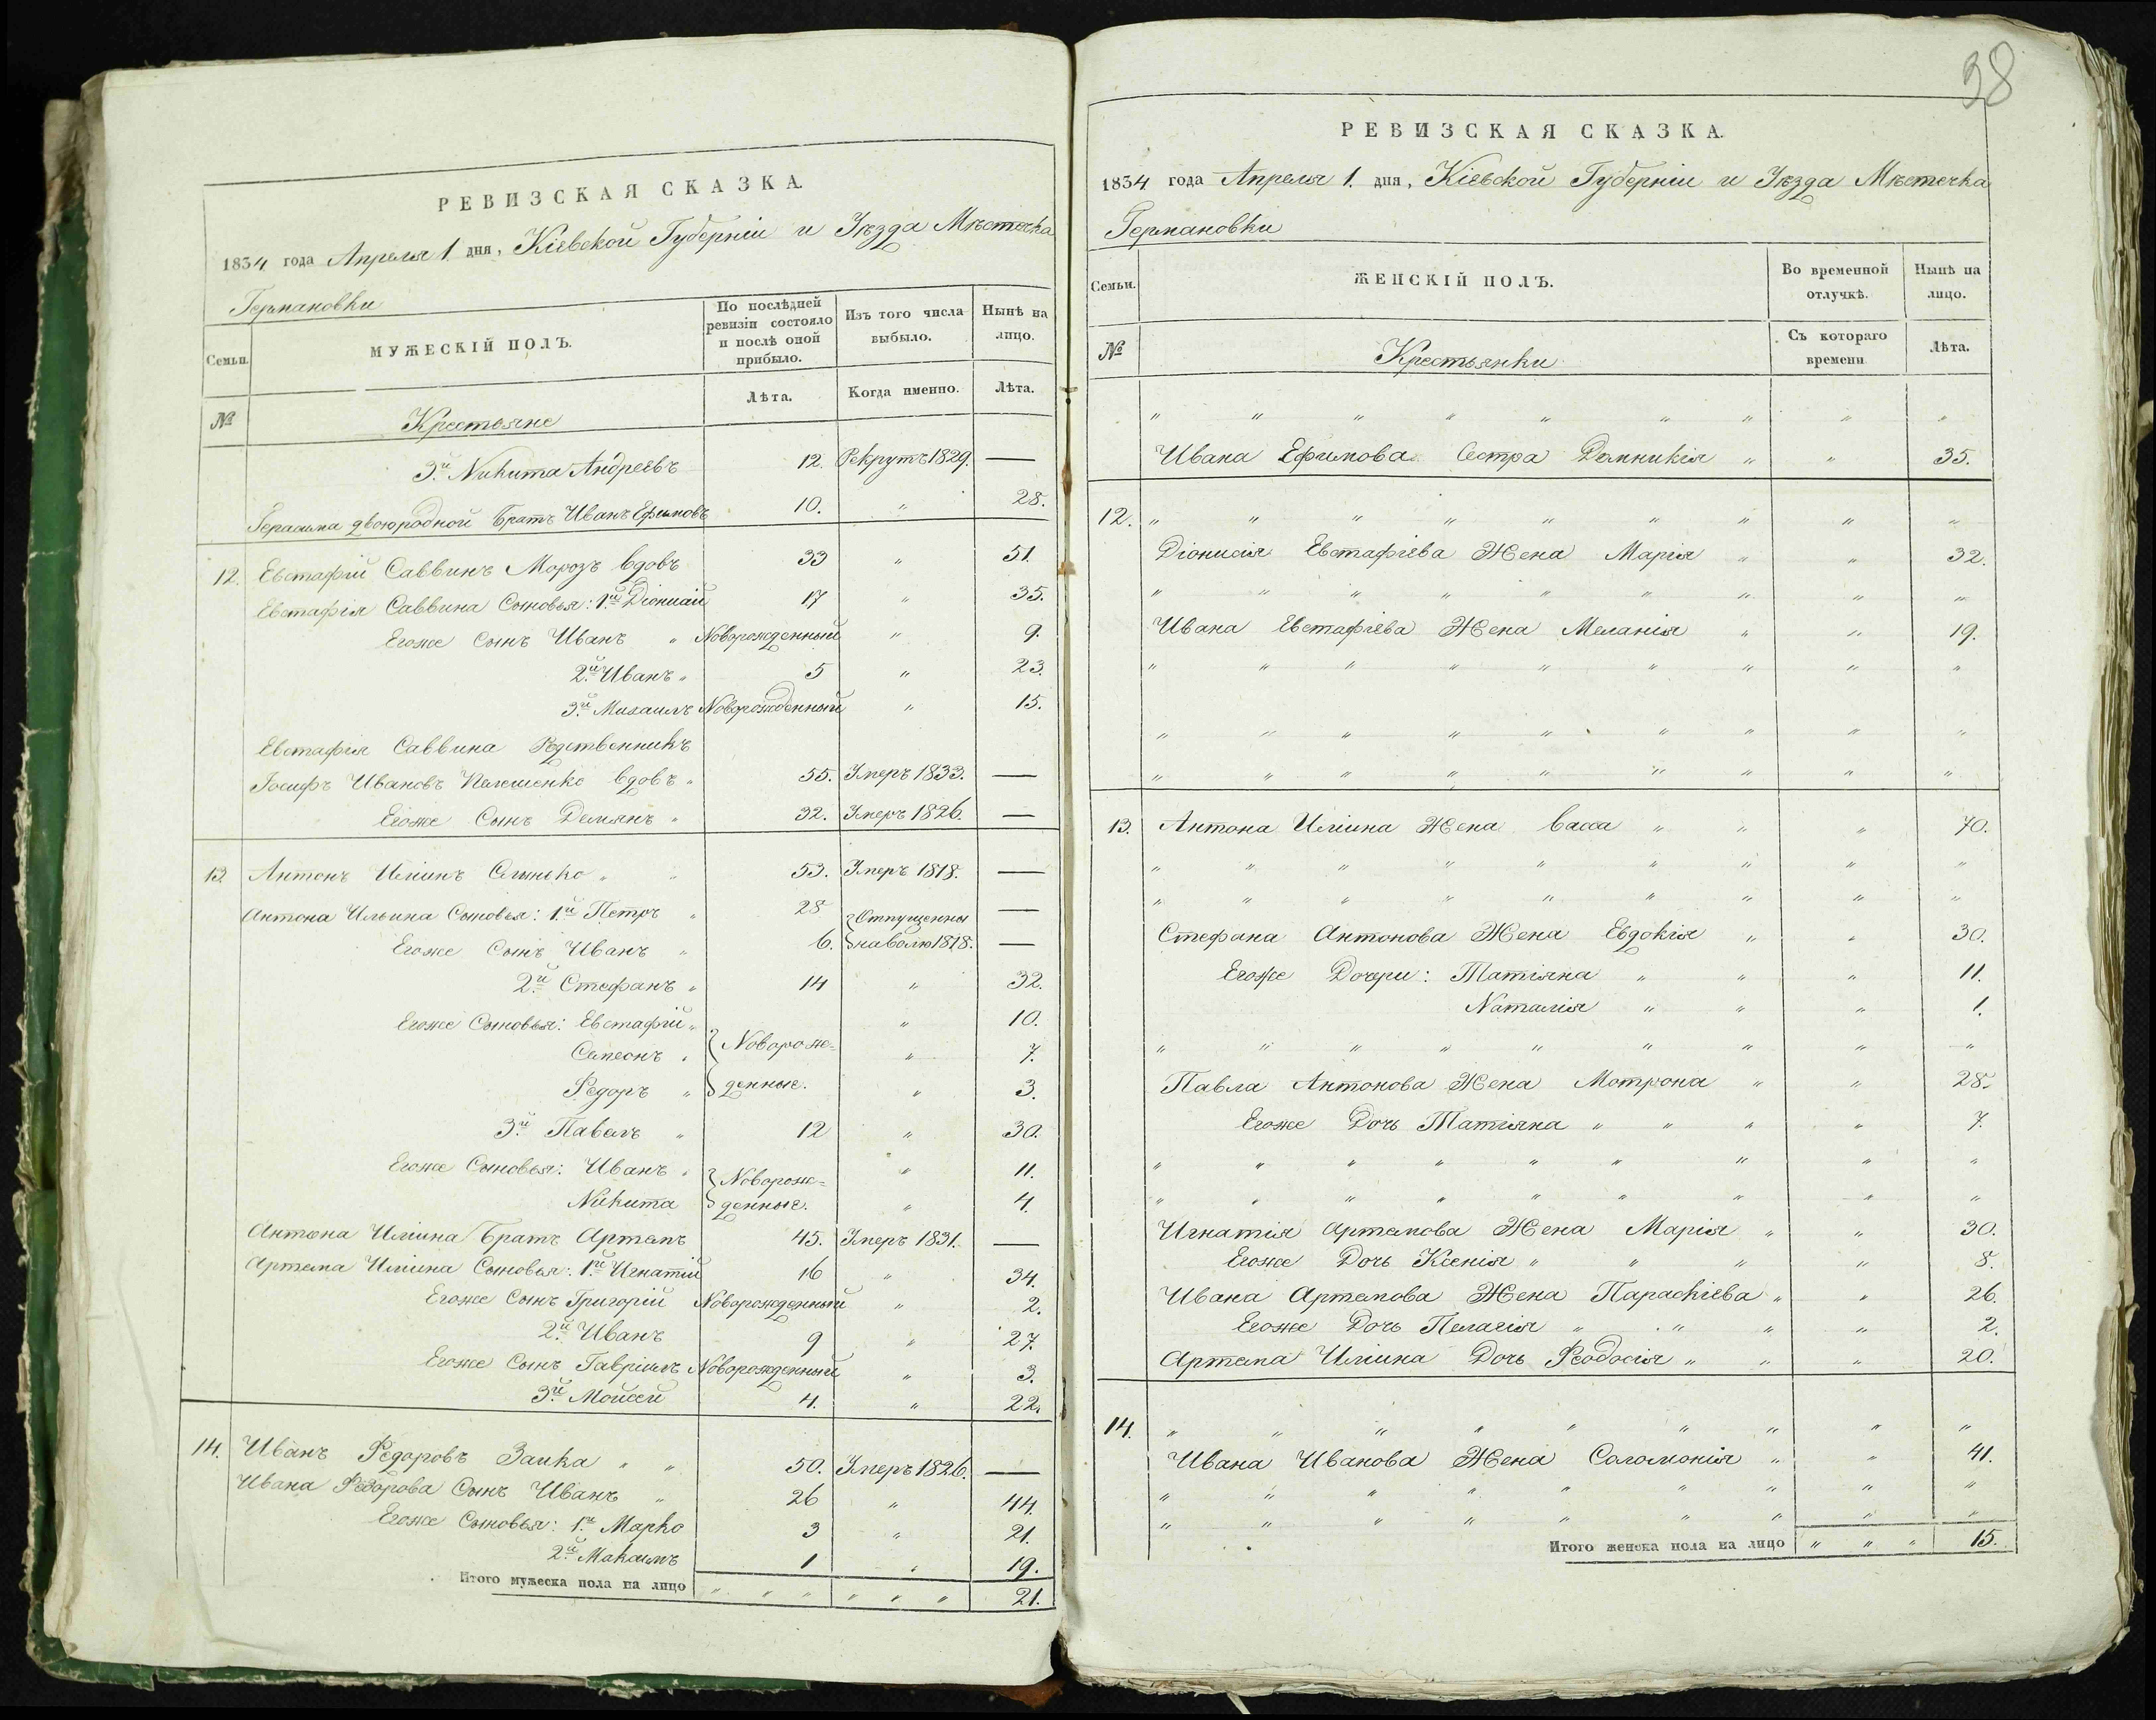 РЕВИЗСКАЯ СКАЗКА.
1834 года Апреля 1 дня, Кіевской Губерніи и Уѣзда Мѣстечка
Германовки
Семьи.
МУЖЕСКІЙ ПОЛЪ.
По послѣдней ревизіи состояло и послѣ оной прибыло.
Изъ того числа выбыло.
Нынѣ на лицо.
№
Крестьяне
Лѣта.
Когда именно.
Лѣта.
3й Никита Андреевъ 12. Рекрутъ 1829. —
Герасима двоюродной братъ Иванъ Ефимовъ 10. " 28.
12. Евстафій Саввинъ Морозъ вдовъ 33 " 51.
Евстафія Саввина Сыновья: 1й Діонисій 17 " 35.
Егоже Сынъ Иванъ " Новорожденный " 9.
2й Иванъ " 5 " 23.
3й Михаилъ Новорожденный " 15.
Евстафія Саввина Родственникъ
Іосифъ Ивановъ вдовъ " 55. Умеръ 1833. —
Егоже Сынъ Демянъ " 32. Умеръ 1826. —
13. Антонъ Иліинъ " " 53. Умеръ 1818. —
Антона Ильина Сыновья: 1й Петръ " 28 Отпущенны —
Егоже Сынъ Иванъ " 6. наволю 1818. —
2й Стефанъ " 14 " 32.
Егоже Сыновья: Евстафій " " 10.
Симеонъ " Новорож= " 7.
Федоръ " денные. " 3.
3й Павелъ " 12 " 30.
Егоже Сыновья: Иванъ " Новорож= " 11.
Никита денные. " 4.
Антона Иліина Братъ Артемъ 45. Умеръ 1831. —
Артема Иліина Сыновья: 1й Игнатій 16 " 34.
Егоже Сынъ Григорій Новорожденный " 2.
2й Иванъ 9 " 27.
Егоже Сынъ Гавріилъ Новорожденный " 3.
3й Мойсей 4. " 22.
14. Иванъ Федоровъ Заика " " 50. Умеръ 1826. —
Ивана Федорова Сынъ Иванъ " 26 " 44.
Егоже Сыновья: 1й Марко 3 " 21.
2й Максимъ 1 " 19.
Итого мужеска пола на лицо " " " " " " 21.
38
РЕВИЗСКАЯ СКАЗКА.
1834 года Апреля 1. дня, Кіевской Губерніи и Уѣзда Мѣстечка
Германовки
Семьи.
ЖЕНСКІЙ ПОЛЪ.
Во временной отлучкѣ.
Нынѣ на лицо.
№
Крестьянки
Съ котораго времени
Лѣта.
" " " " " " " " "
Ивана Ефимова Сестра Домникія " " 35.
12. " " " " " " " " "
Діонисія Евстафіева Жена Марія " " 32.
" " " " " " " " "
Ивана Евстафіева Жена Меланія " " 19.
" " " " " " " " "
" " " " " " " " "
" " " " " " " " "
13. Антона Иліина Жена Васса " " " 70.
" " " " " " " " "
" " " " " " " " "
Стефана Антонова Жена Евдокія " " 30.
Егоже Дочери: Татіяна " " " 11.
Наталія " " " 1.
" " " " " " " " "
Павла Антонова Жена Мотрона " " 28.
Егоже Дочь Татіяна " " " " 7.
" " " " " " " " "
" " " " " " " " "
Игнатія Артемова Жена Марія " " 30.
Егоже Дочь Ксенія " " " " 8.
Ивана Артемова Жена Параскіева " " 26.
Егоже Дочь Пелагія " " " " 2.
Артема Иліина Дочь Феодосія " " " 20.
14. " " " " " " " " "
Ивана Иванова Жена Соломонія " " 41.
" " " " " " " " "
" " " " " " " " "
Итого женска пола на лицо " " " 15.